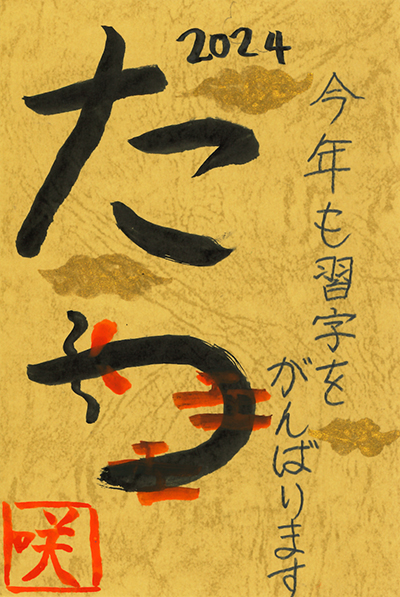 2024
今年も習字を
がんばります
たつ
咲